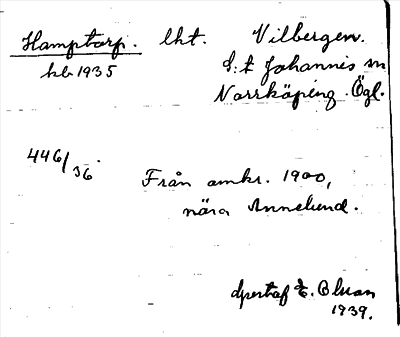 Hamptorp. lht. Vilbergen.
kb 1935 S:t Johannis sn
Norrköping. Ögl.
446/36
Från omkr. 1900,
nära Annelund.
E. Olson
1939.